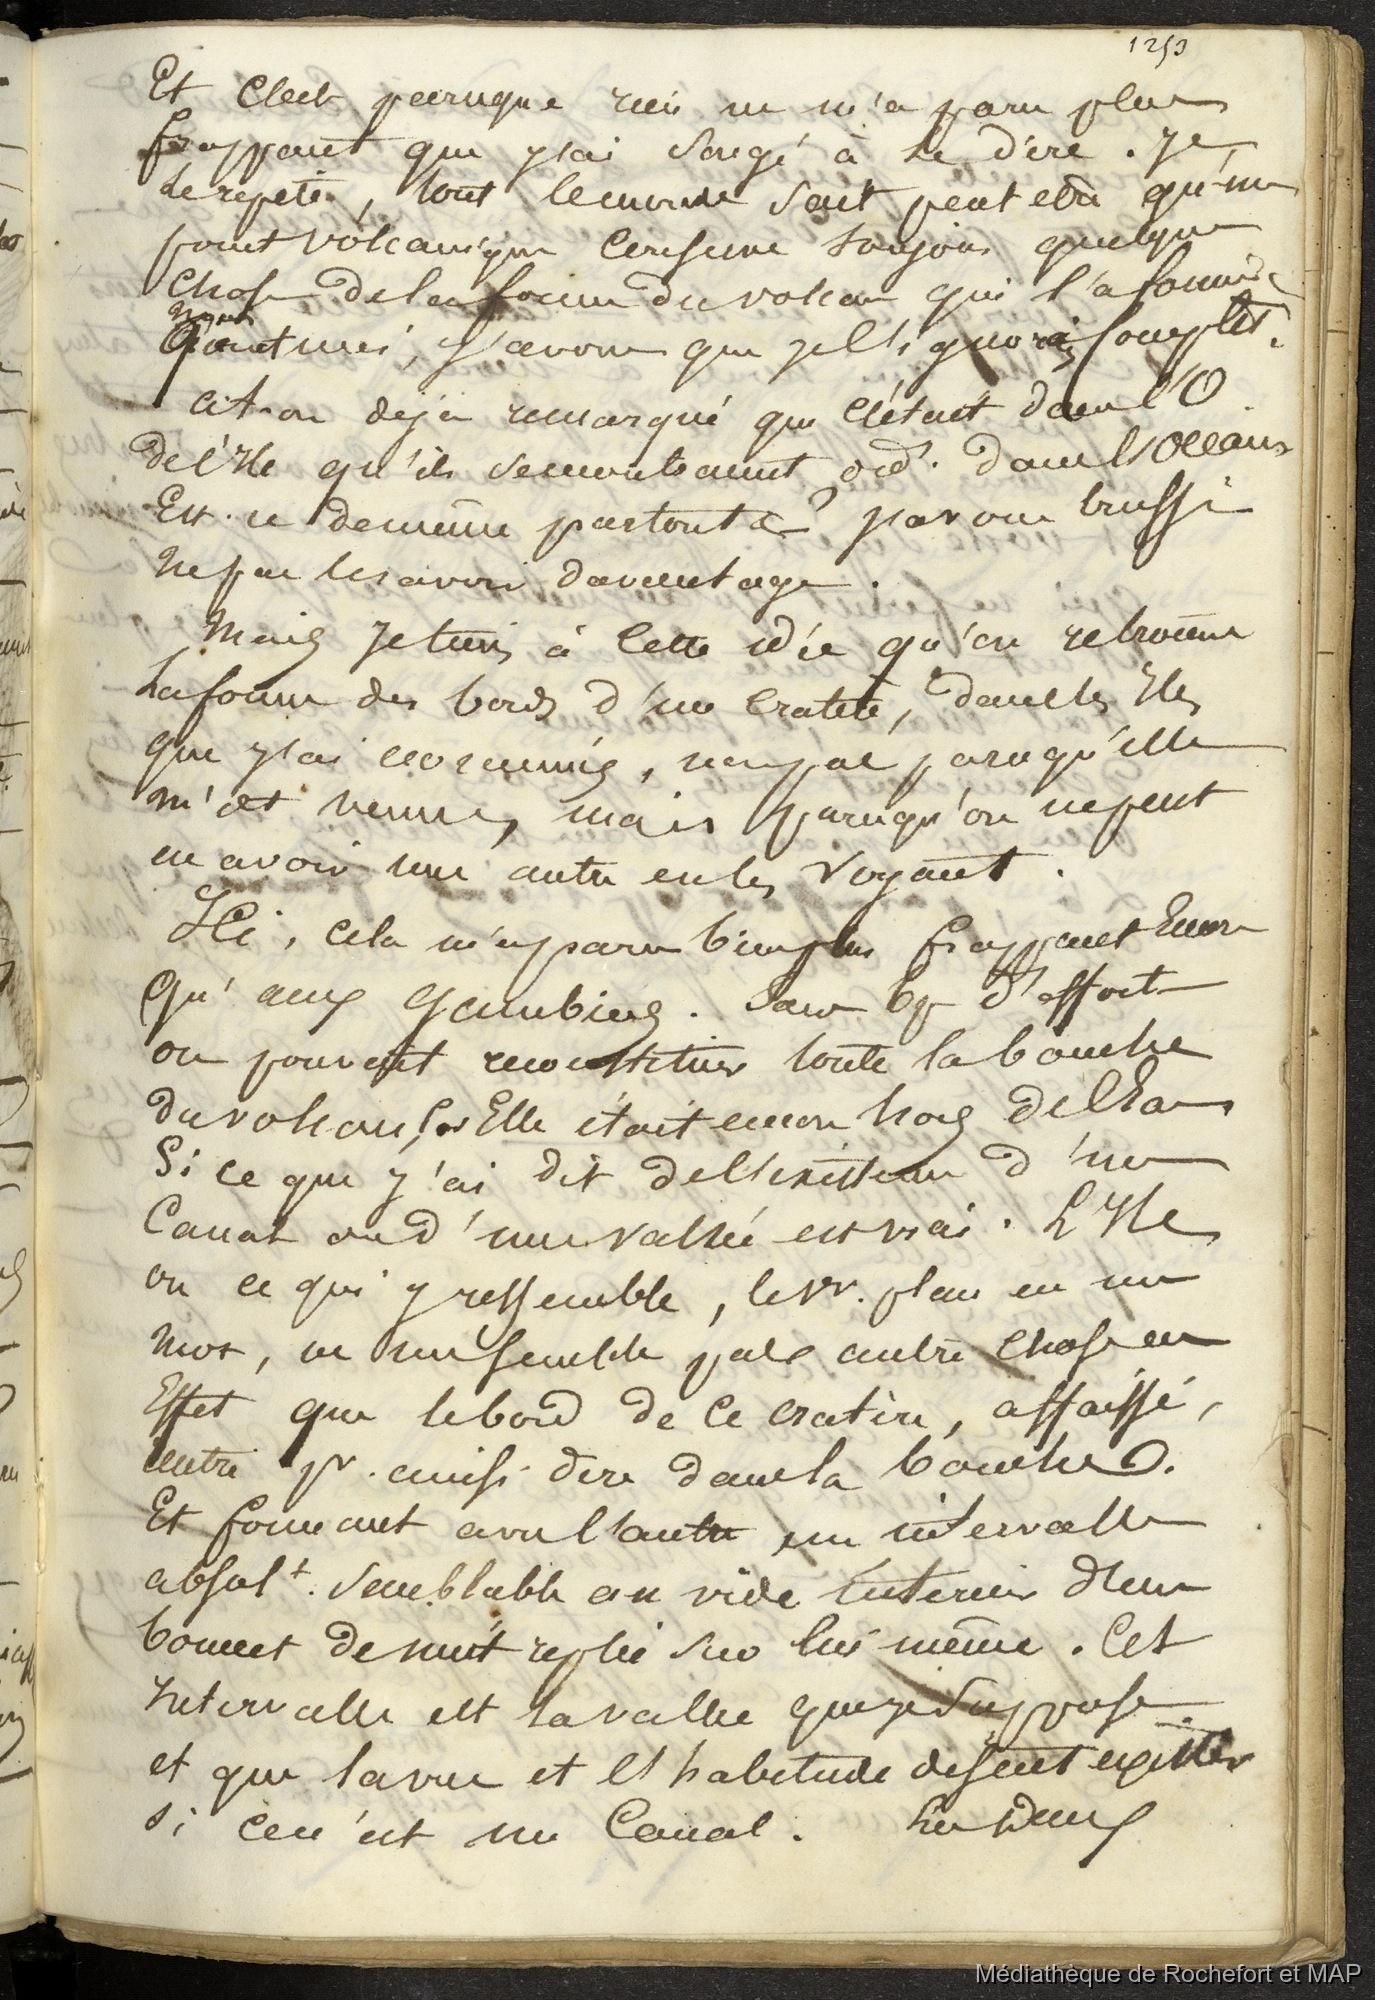 1253
Et C'est parceque rien ne m'a paru plus
frappant que j'ai Songé à le dire. Je
le repete, tout le monde Sait peut etre qu'un
point volcanique Conserve toujours quelque
Chose de la forme du volcan qui l'a formé.
Quant moi, J'avoue que je l'ignorais Complet.
a-t-on deja remarqué que C'était dans l'O.
de l'Ile qu'ils se montraient ord. dans l'Océan
Est-ce de même partout ? J'avoue aussi
Ne pas le savoir davantage.
Mais Je tiens à Cette idée qu'on retrouve
La forme des bords d'un Cratère, dans les Iles
que j'ai examinées, non pas parcequ'elle
m'est venue, mais parcequ'on ne peut
en avoir une autre en les Voyant.
Ici, Cela m'a paru bien plus frappant Encore
Qu'aux Gambiers. Sans bp d'effort
on pouvait reconstituer toute la bouche
du volcan, Elle était encore hors de l'Eau
Si ce que j'ai dit de l'existence d'un
Canal ou d'une vallée est vrai. L'Ile
ou ce qui y ressemble, le 1er. plan en un
Mot, ne me semble pas autre Chose en
Effet que le bord de Ce cratère, affaissé,
entré pr. ainsi dire dans la bouche O.
Et formant avec l'autre un intervalle
absolt. Semblable au vide intérieur d'un
bonnet de nuit replié sur lui même. Cet
Intervalle est la vallée que je Suppose
et que la vue et l'habitude disent exister
Si Ce n'est un Canal. Les deux
Médiathèque de Rochefort et MAP